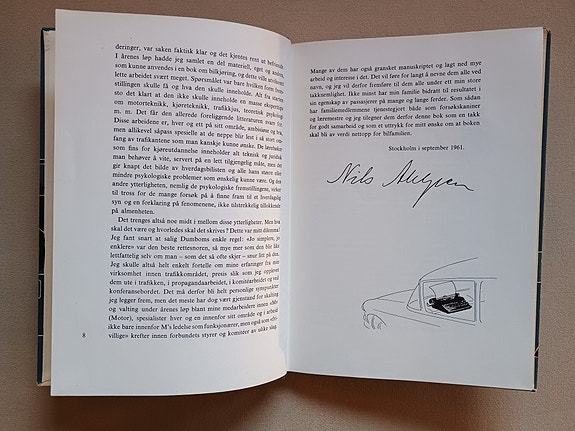 deringer, var saken faktisk klar og det kjentes rent ut befriende.
I årenes løp hadde jeg samlet en del materiell, eget og andres,
som kunne anvendes i en bok om bilkjøring, og dette ville utvilsomt
lette arbeidet svært meget. Spørsmålet var bare hvilken form frem-
stillingen skulle få og hva den skulle inneholde. Alt fra starten
sto det klart at den ikke skulle inneholde en masse ekspertstoff
om motorteknikk, kjøreteknikk, trafikkjus, teoretisk psykologi
m. m. Det får den allerede foreliggende litteraturen svare for.
Disse arbeidene er, hver og ett på sitt område, ambisiøse og bra,
men allikevel såpass spesielle at de neppe blir lest i så stort om-
fang av trafikantene som man kanskje kunne ønske. De lærebøker
som fins for kjøreutdannelse inneholder alt teknisk og juridisk
man behøver å vite, servert på en lett tilgjengelig måte, men det
er knapt det bilde av hverdagsbilisten og alle hans større eller
mindre psykologiske problemer som ønskelig kunne være. Den
andre ytterligheten, nemlig de psykologiske fremstillingene, virker
til tross for mange forsøk på å finne fram til et hverdagslig
syn og en forklaring på fenomenene, ikke tilstrekkelig tillokkende
på almenheten.
Det trenges altså noe midt i mellom disse ytterligheter. Men hva
skal det være og hvorledes skal det skrives? Dette var mitt dilemma!
Jeg fant snart at salig Dumboms enkle regel: «Jo simplere, jo
enklere» var den beste rettesnoren, så mye mer som den blir like
lettfattelig selv om man — som det så ofte skjer — snur litt på den.
Jeg skulle altså helt enkelt fortelle om mine erfaringer fra min
virksomhet innen trafikkområdet, presis slik som jeg opplevet
dem ute i trafikken, i propagandaarbeidet, i komitéarbeidet og ved
konferansebordet. Det må derfor bli helt personlige synspunkter
jeg legger frem, men det meste har dog vært gjenstand for skalting
og valting under årenes løp blant mine medarbeidere innen «M»
(Motor), spesialister hver og en innenfor sitt område og i arbeid
ikke bare innenfor M's ledelse som funksjonærer, men også som «fri-
villige» krefter innen forbundets styrer og komitéer av ulike slag.
8
Mange av dem har også gransket manuskriptet og lagt ned mye
arbeid og interesse i det. Det vil føre for langt å nevne dem alle ved
navn, og jeg vil derfor fremføre til dem en stor, altomfattende
takknemlighet. Ikke minst har min familie bidratt til resultatet i
sin egenskap av passasjerer på mange og lange ferder. Som sådan
har familiemedlemmene tjenestegjort både som forsøkskaniner
og læremestre, og jeg tilegner dem derfor denne bok som en takk
for godt samarbeid og som et uttrykk for mitt ønske om at boken
skal bli av verdi nettopp for bilfamilien.
Stockholm i september 1961.
Nils Ahlgren